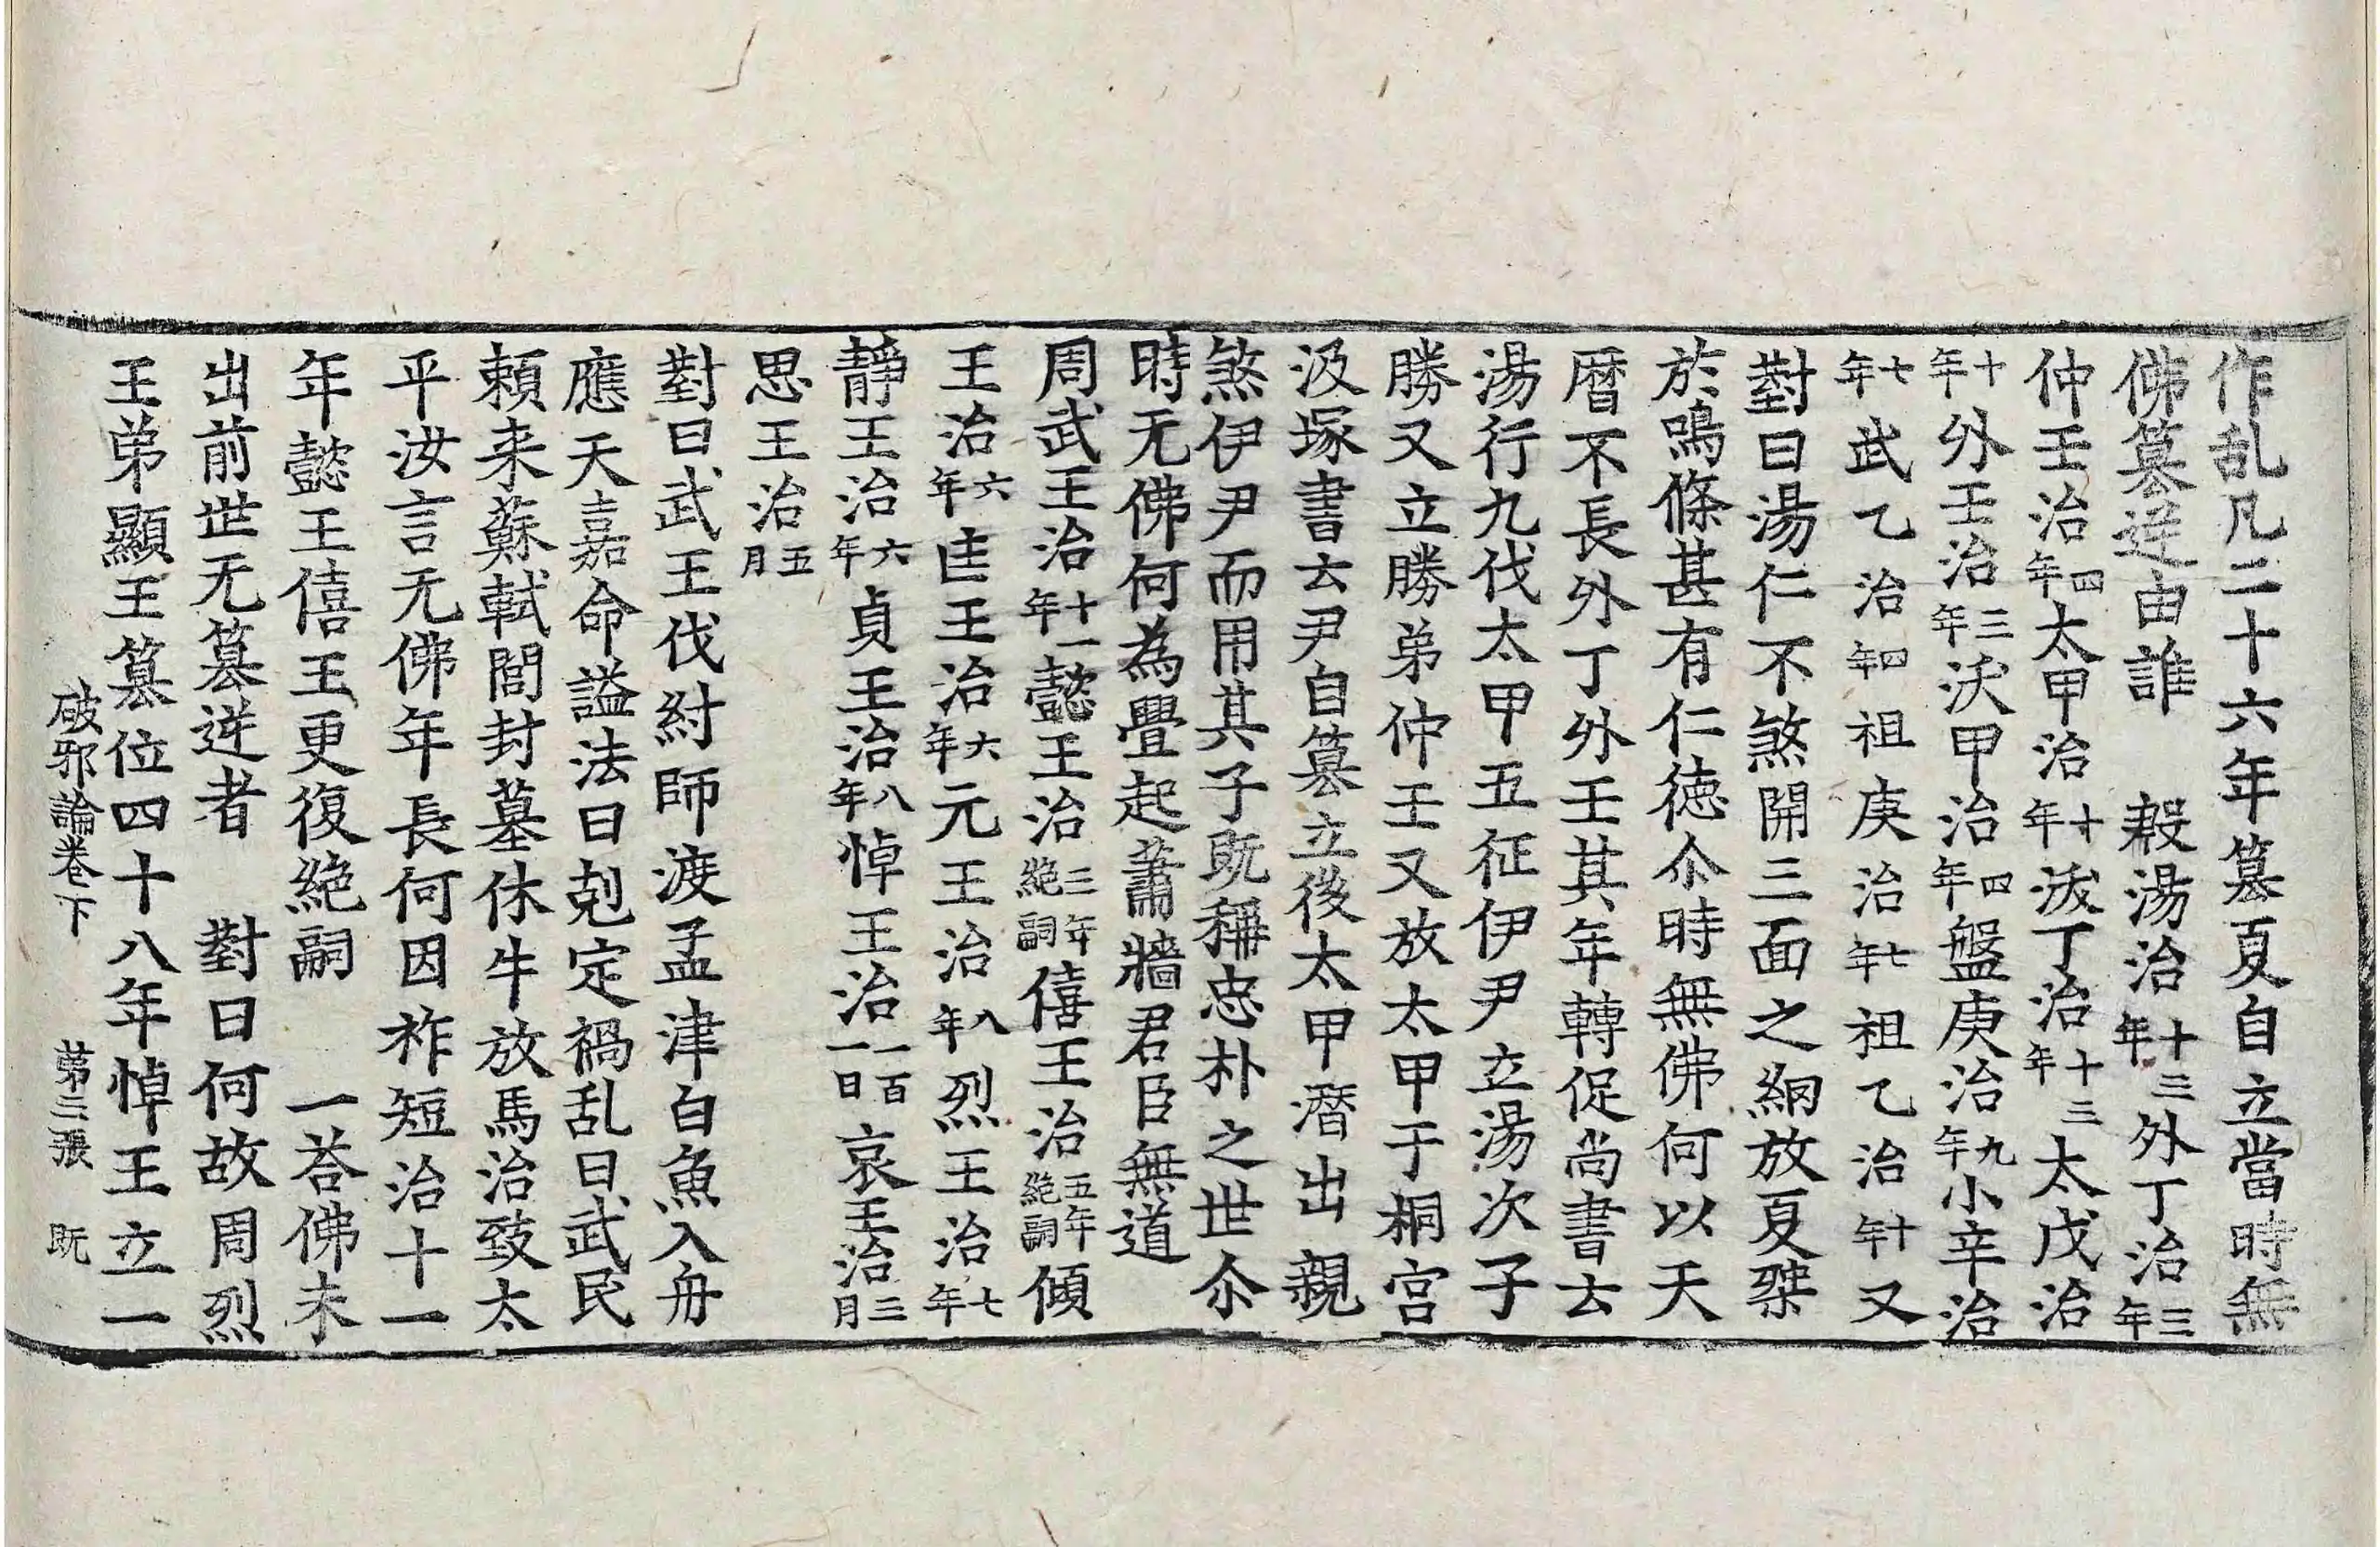 作乱凡二十六年篡夏自立當時無
佛篡逆由誰　殷湯治十三年外丁治三年
仲壬治四年太甲治十年沃丁治十三年太戊治
十年外壬治三年沃甲治四年盤庚治九年小辛治
七年武乙治四年祖庚治七年祖乙治十年又
對曰湯仁不煞開三面之網放夏桀
於鳴條甚有仁徳尒時無佛何以天
曆不長外丁外壬其年轉促尚書云
湯行九伐太甲五征伊尹立湯次子
勝又立勝弟仲壬又放太甲于桐宮
汲塚書云尹自篡立後太甲潛出親
煞伊尹而用其子既稱忠朴之世尒
時无佛何為舋起蕭牆君臣無道
周武王治十一年懿王治三年絕嗣僖王治五年絕嗣傾
王治六年匡王治六年元王治八年烈王治七年
靜王治六年貞王治八年悼王治一百一日哀王治三月
思王治五月
對曰武王伐紂師渡孟津白魚入舟
應天嘉命謚法曰剋定禍乱曰武民
頼来蘇軾閭封墓休牛放馬治致太
平汝言无佛年長何因祚短治十一
年懿王僖王更復絕嗣　一荅佛未
出前世无篡逆者　對曰何故周烈
王弟顯王篡位四十八年悼王立一
破邪論卷下　第三張　既